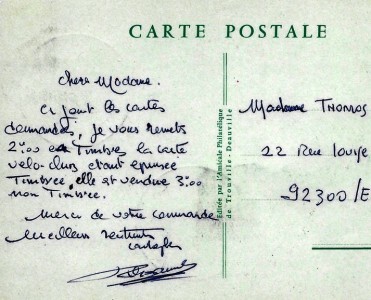 CARTE POSTALE
Chère Madame.
Ci joint les cartes
demandées, je vous remets
2F00 en Timbres la carte
velo-clubs étant épuisée
Timbrée, elle est vendue 3F00
non Timbrée.
Merci de votre commande
Meilleurs sentiments
Editée par l'Amicale Philatélique
de Trouville-Deauville
Madame THOMAS
22 Rue Louise
92300/